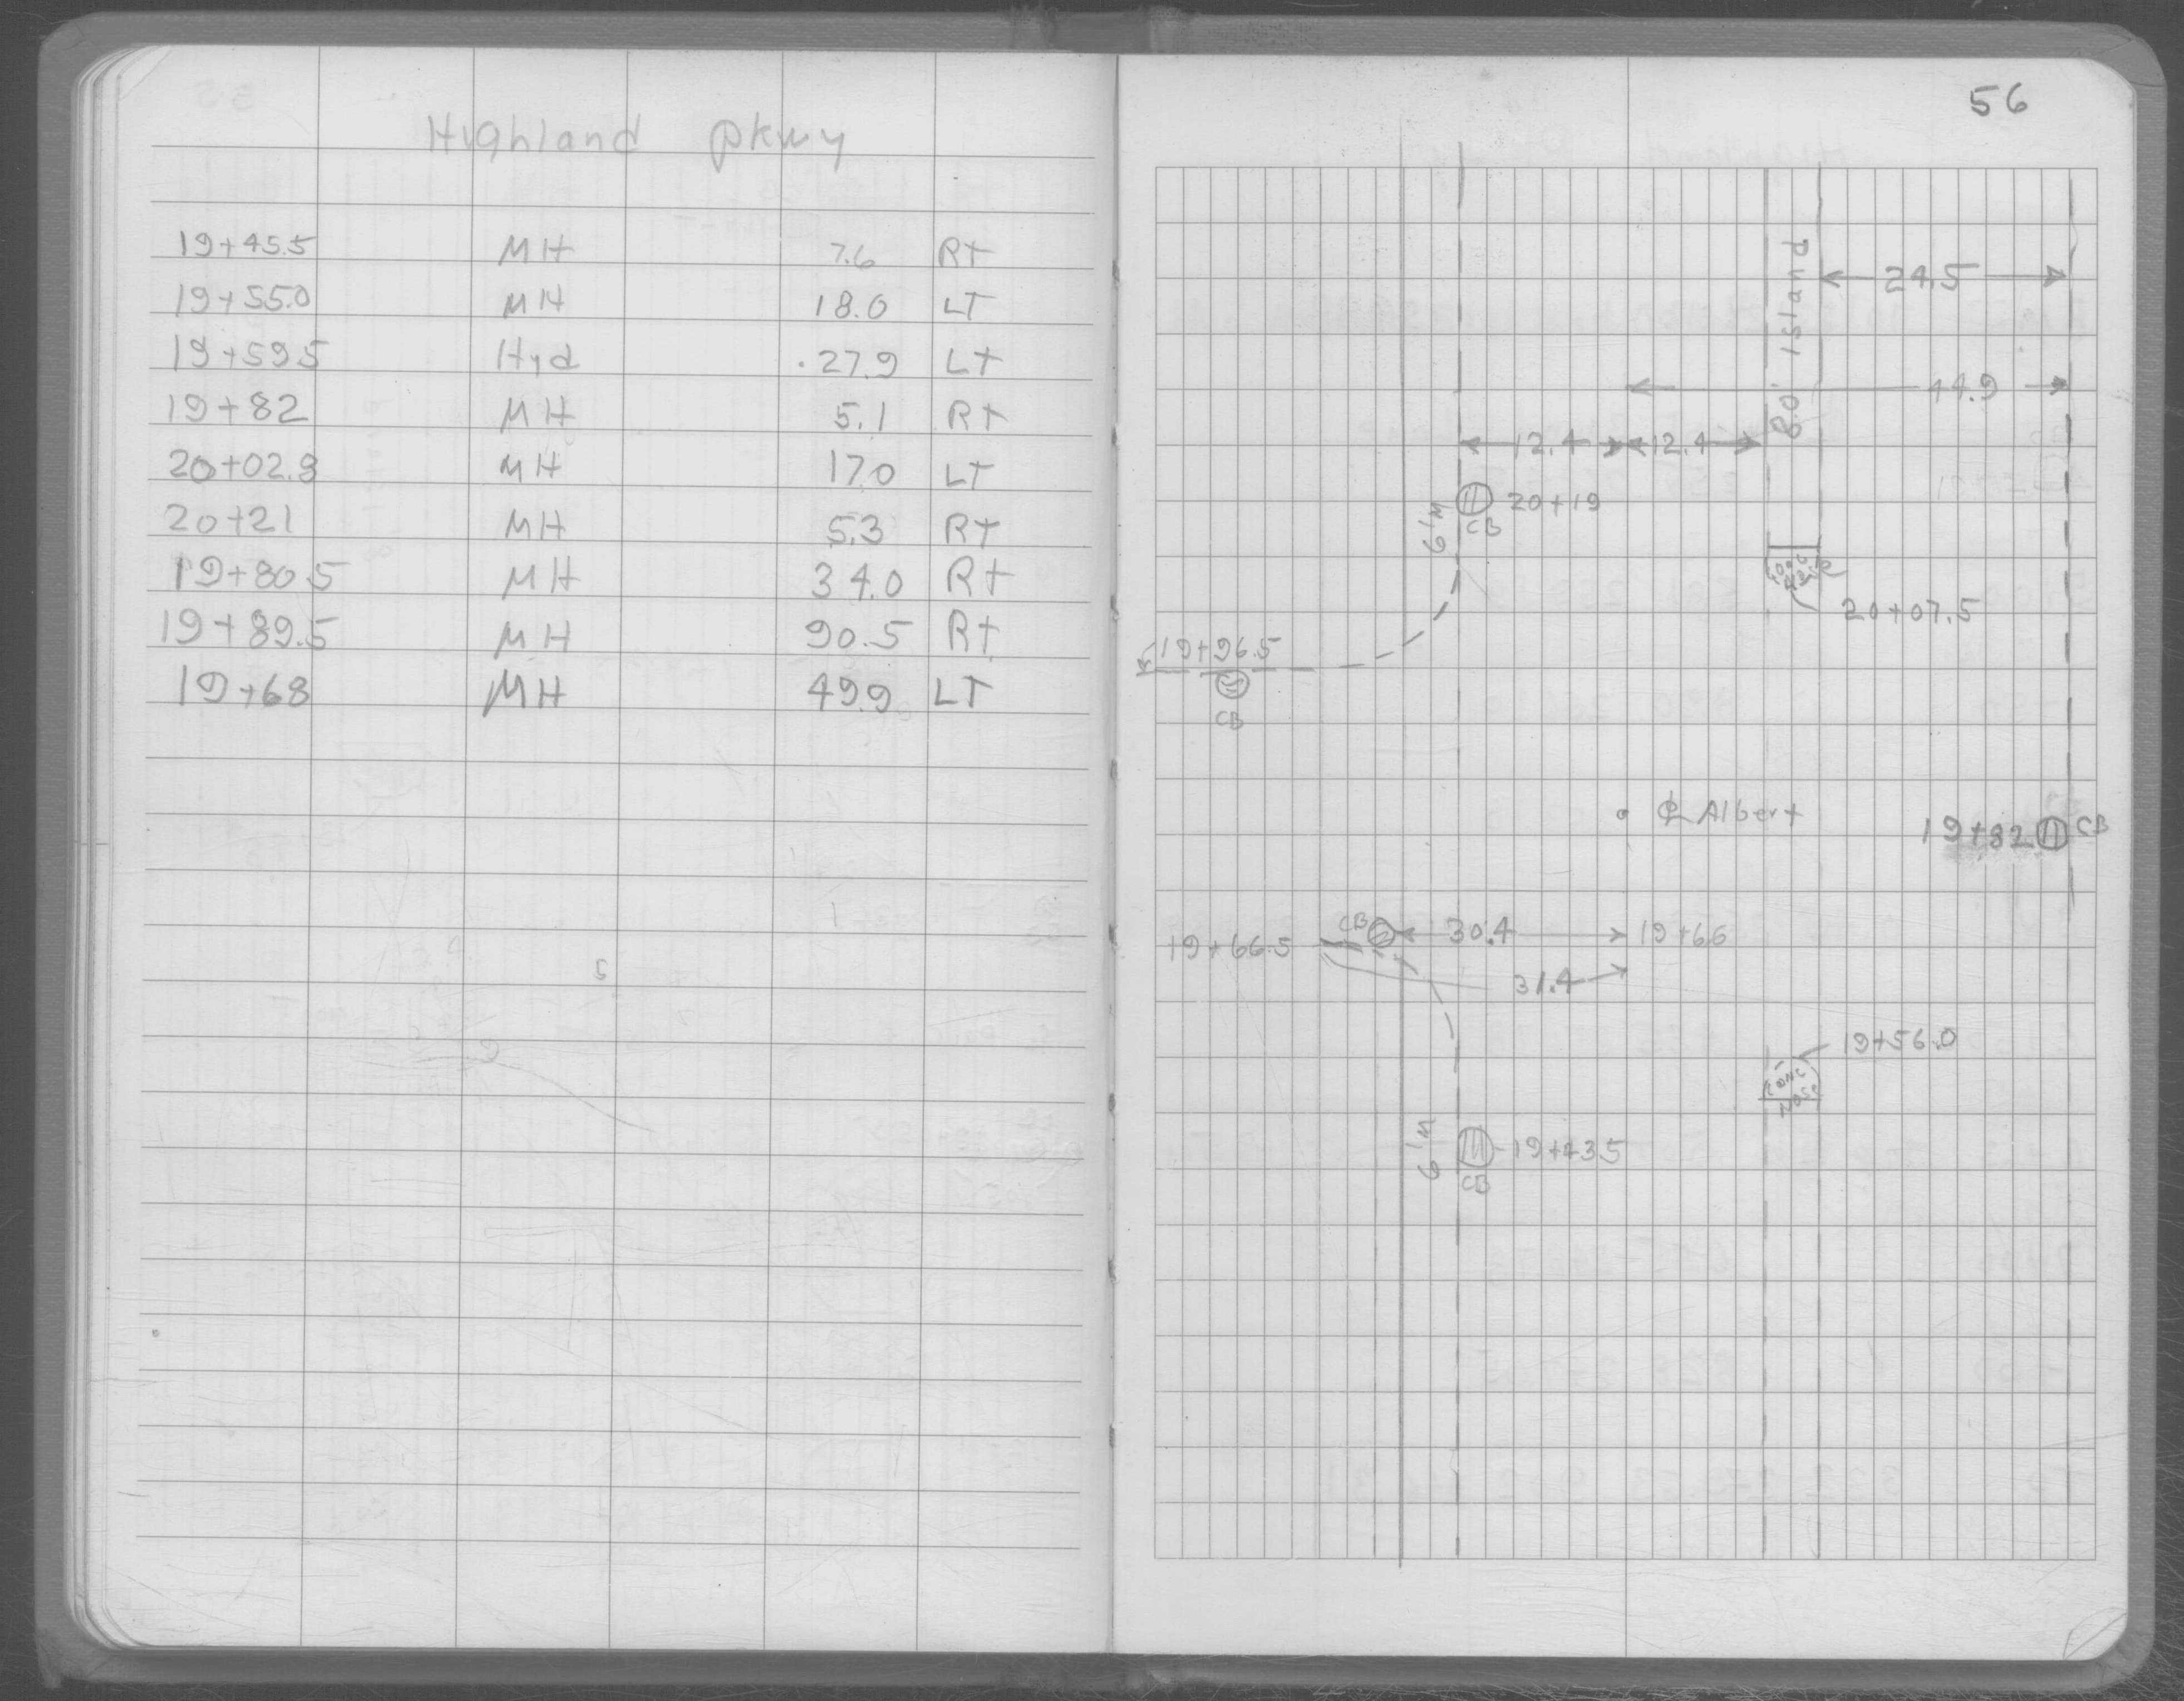 Highland Pkwy
19+45.5 MH 7.6 Rt
19+55.0 MH 18.0 LT
19+59.5 Hyd 27.9 Lt
19+82 MH 5.1 Rt
20+02.8 MH 17.0 LT
20+21 MH 5.3 Rt
19+80.5 MH 34.0 Rt
19+89.5 MH 90.5 Rt
19+68 MH 49.9 LT
56
24.5
8.0' Island
44.9
12.4 12.4
20+19
CB
6'
20+07.5
19+96.5
CB
℄ Albert
19+82 CB
CB 30.4 19+66
19+66.5
31.4
19+56.0
CONC
NOSE
6'
19+43.5
CB